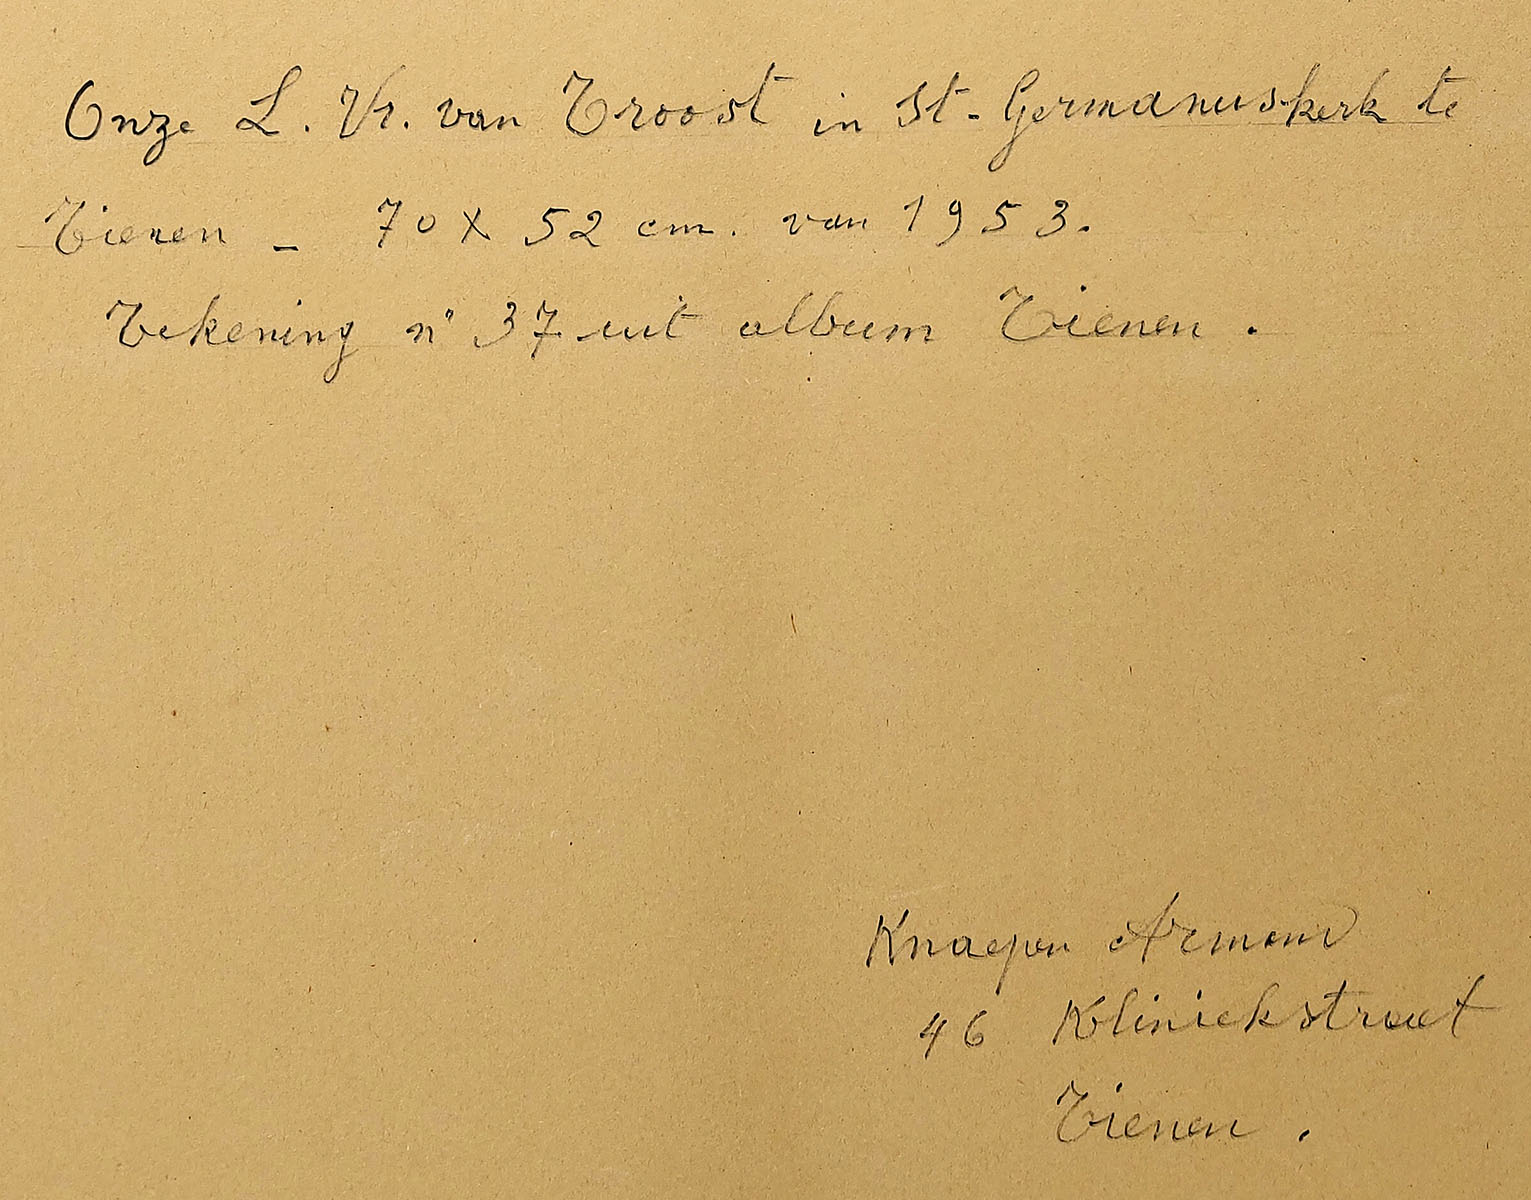 Onze L. Vr. van Troost in St.-Germanuskerk te
Tienen - 70 X 52 cm. van 1953.
Tekening n° 37 uit album Tienen.
Knaepen Armand
46 Kliniekstraat
Tienen.